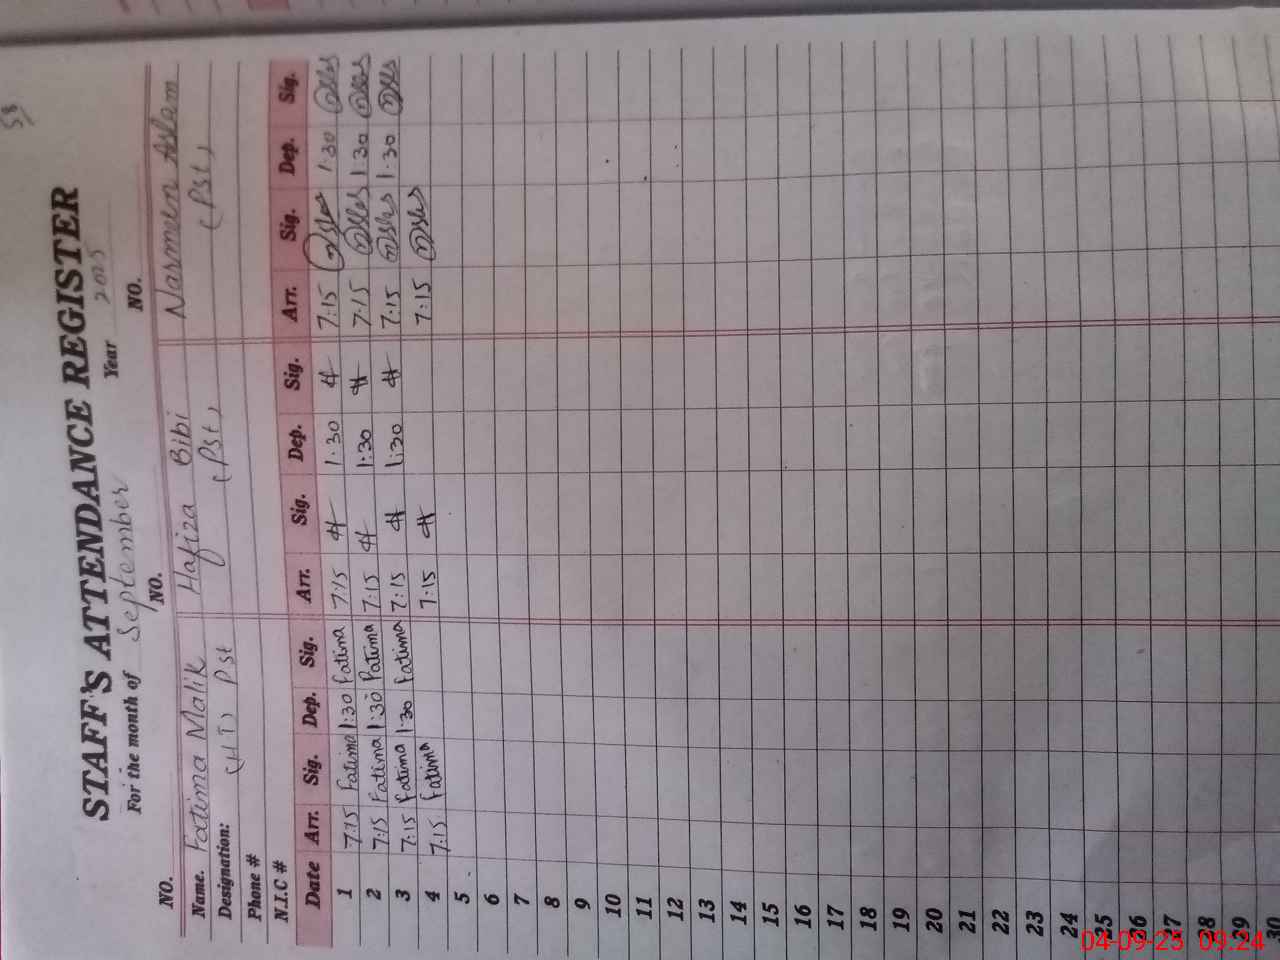 58
STAFF'S ATTENDANCE REGISTER
For the month of September Year 2025
NO. NO. NO.
Name. Fatima Malik Hafiza Bibi Nasmeen Aslam
Designation: Pst (Pst) (Pst)
Phone #
N.I.C #
Date Arr. Sig. Dep. Sig. Arr. Sig. Dep. Sig. Arr. Sig. Dep. Sig.
1 7:15 Fatima 1:30 Fatima 7:15 1:30 7:15 1:30
2 7:15 Fatima 1:30 Fatima 7:15 1:30 7:15 1:30
3 7:15 Fatima 1:30 Fatima 7:15 1:30 7:15 1:30
4 7:15 Fatima 7:15 7:15
5
6
7
8
9
10
11
12
13
14
15
16
17
18
19
20
21
22
23
24
25
26
27
28
29
30
04-09-25 09:24